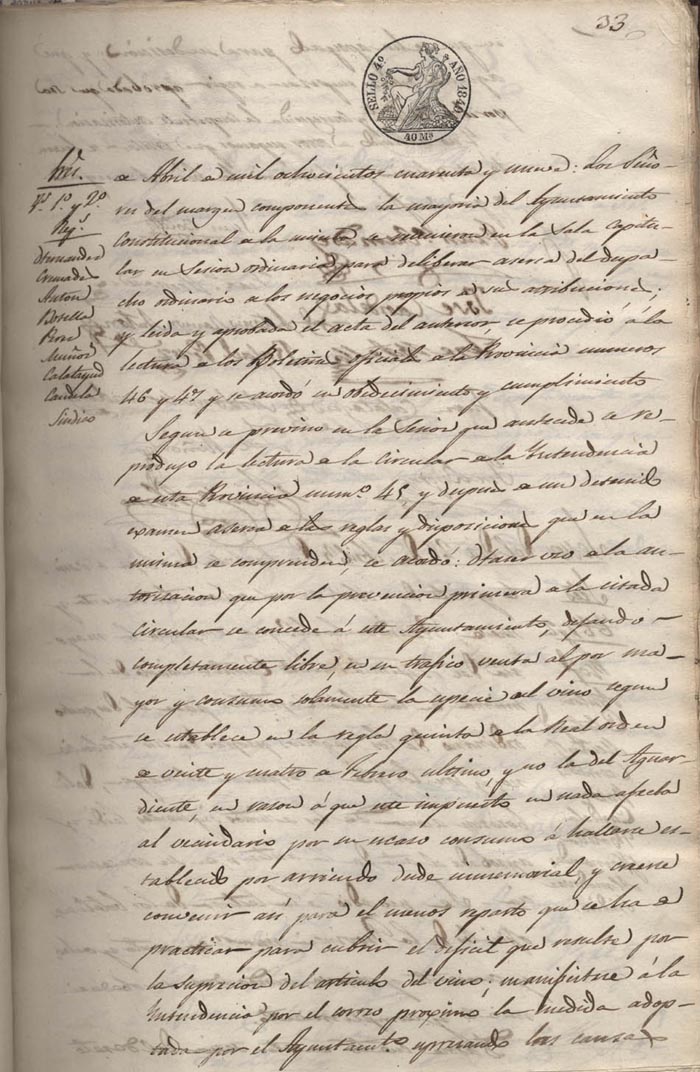 33
SELLO 4º AÑO 1849
40 Ms
Sres.
Ps. 1º y 2º
Rejs.
Hernandez
Cremades
Anton
Botella
Rore
Muñoz
Calatayud
Candela
Sindico
e Abril e mil ochocientos cuarenta y nueve: Los Seño-
res del margen componentes la mayoria del Ayuntamiento
Constitucional e la misma se reunieron en la Sala Capitu-
lar en Sesion ordinaria para deliberar acerca del despa-
cho ordinario e los negocios propios e sus atribuciones;
y leida y aprobada el acta del anterior se procedió á la
lectura e los Boletines oficiales e la Provincia numeros
46 y 47 y se acordó su obedecimiento y cumplimiento
Segun se previno en la Sesion que antecede se re-
produjo la lectura e la Circular e la Intendencia
e esta Provincia numº 45, y despues e un detenido
examen acerca e las reglas y disposiciones que en la
misma se comprenden, se acordó: Hacer uso e la au-
torizacion que por la prevencion primera e la citada
Circular se concede á este Ayuntamiento, dejando
completamente libre, en su trafico venta al por ma-
yor y consumo solamente la especie del vino segun
se establece en la regla quinta e la Real orden
e veinte y cuatro e Febrero ultimo, y no la del Aguar-
diente, en razon á que este impuesto en nada afecta
al vecindario por su escaso consumo á hallarse es-
tablecido por arriendo desde inmemorial y creerse
convenir asi para el menos reparto que se ha e
practicar para cubrir el deficit que resulte por
la supresion del articulo del vino; manifiestese á la
Intendencia por el correo proximo la medida adop-
tada por el Ayuntamto. espresando las causas